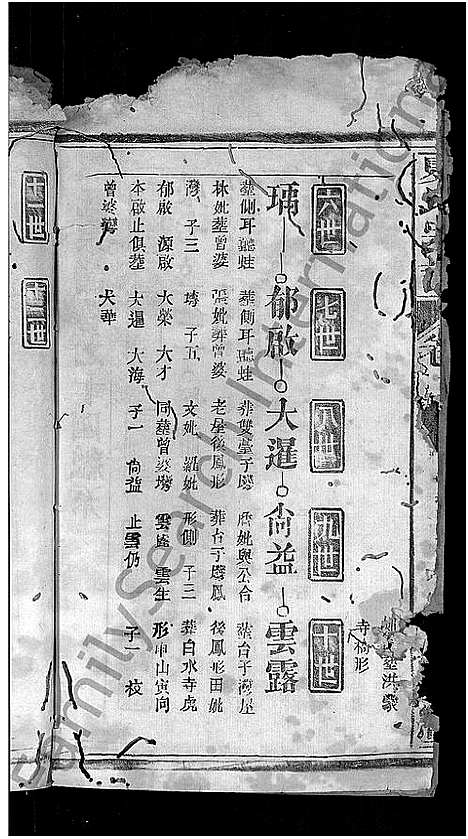 寺椅形
六世
七世
八世
九世
十世
瑀 郁啟 大暹 尙益 雲露
葬側耳聽蛙
林妣葬曾婆
灣 子三
郁啟 源啟
本啟止俱葬
曾婆灣
葬側耳聽蛙
張妣葬曾婆
塆 子五
大榮 大才
大暹 大海
大華
葬雙臺子塝
老屋後鳳形
文妣 羅妣
同葬曾婆塆
子一 尙益
妣與公合
葬台子塝鳳
形側 子三
雲生
止雲仍
葬台子灣屋
後鳳形田妣
葬白水寺虎
形申山寅向
子一 校
十一世
十二世
FamilySearch International